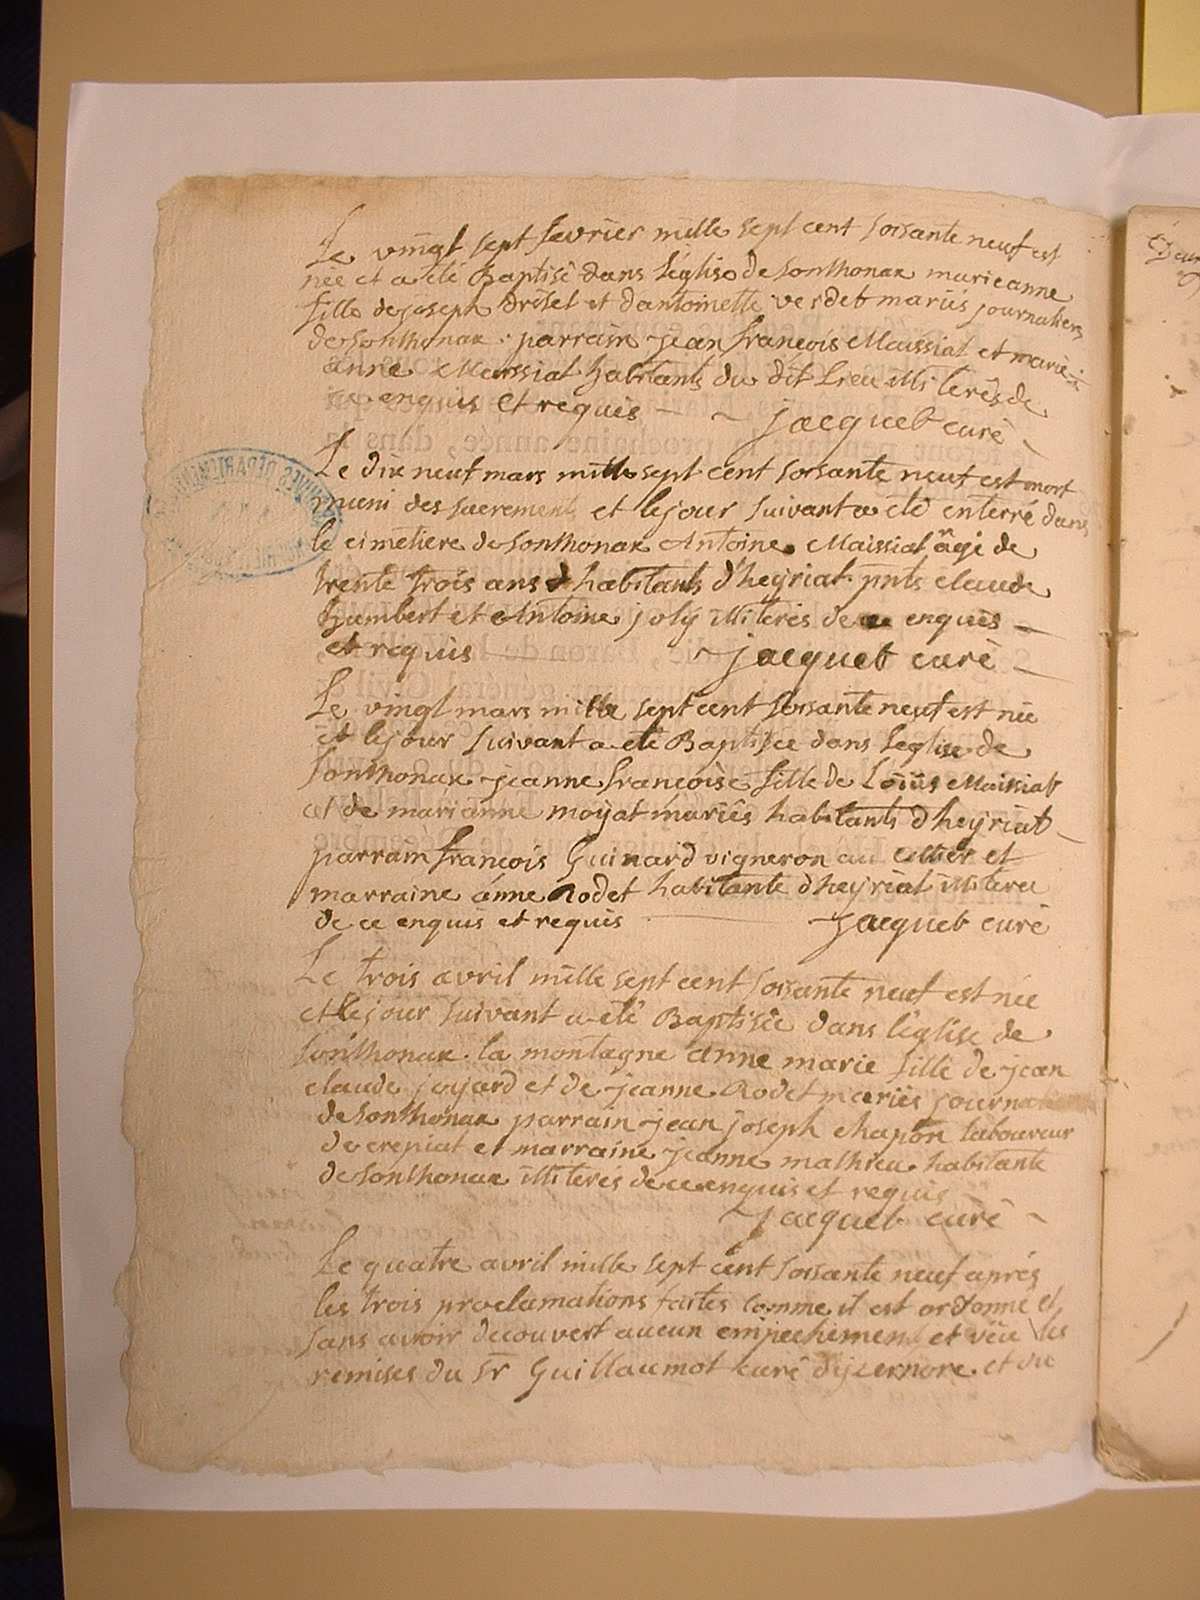 Le vingt sept fevrier mille sept cent soixante neuf est
née et a été Baptisé dans l'église de Sonthonax marieanne
fille de joseph drisel et d'antoinette verdet mariés journaliers
de Sonthonax. parrain jean françois Maissiat et marie
anne Maissiat habitants du dit Lieu illiterés de
ce enquis et requis jacquet curé
Le dix neuf mars mille sept cent soixante neuf est mort
muni des sacrements et le jour suivant a été enterré dans
le cimetiere de Sonthonax Antoine Maissiat âgé de
trente trois ans habitants d'heyriat. pnts claude
humbert et Antoine joly illiterés de ce enquis
et requis jacquet curé
Le vingt mars mille sept cent soixante neuf est née
et le jour suivant a eté Baptisée dans l'eglise de
Sonthonax jeanne françoise fille de Loüis Maissiat
et de marianne moyat mariés habitants d'heyriat
parrain françois Guinard vigneron au et
marraine anne Rodet habitante d'heyriat illiteré
de ce enquis et requis jacquet curé
Le trois avril mille sept cent soixante neuf est née
et le jour suivant a eté Baptisée dans l'église de
Sonthonax. la montagne anne marie fille de jean
claude joyard et de jeanne Rodet mariés journaliers
de Sonthonax parrain jean joseph chapon laboureur
de crepiat et marraine jeanne mathieu habitante
de Sonthonax illiterés de ce enquis et requis
jacquet curé
Le quatre avril mille sept cent soixante neuf après
les trois proclamations faites comme il est ordonné et
sans avoir decouvert aucun empechement et vëu les
remises du Sr Guillaumot curé d'izernore. et vu